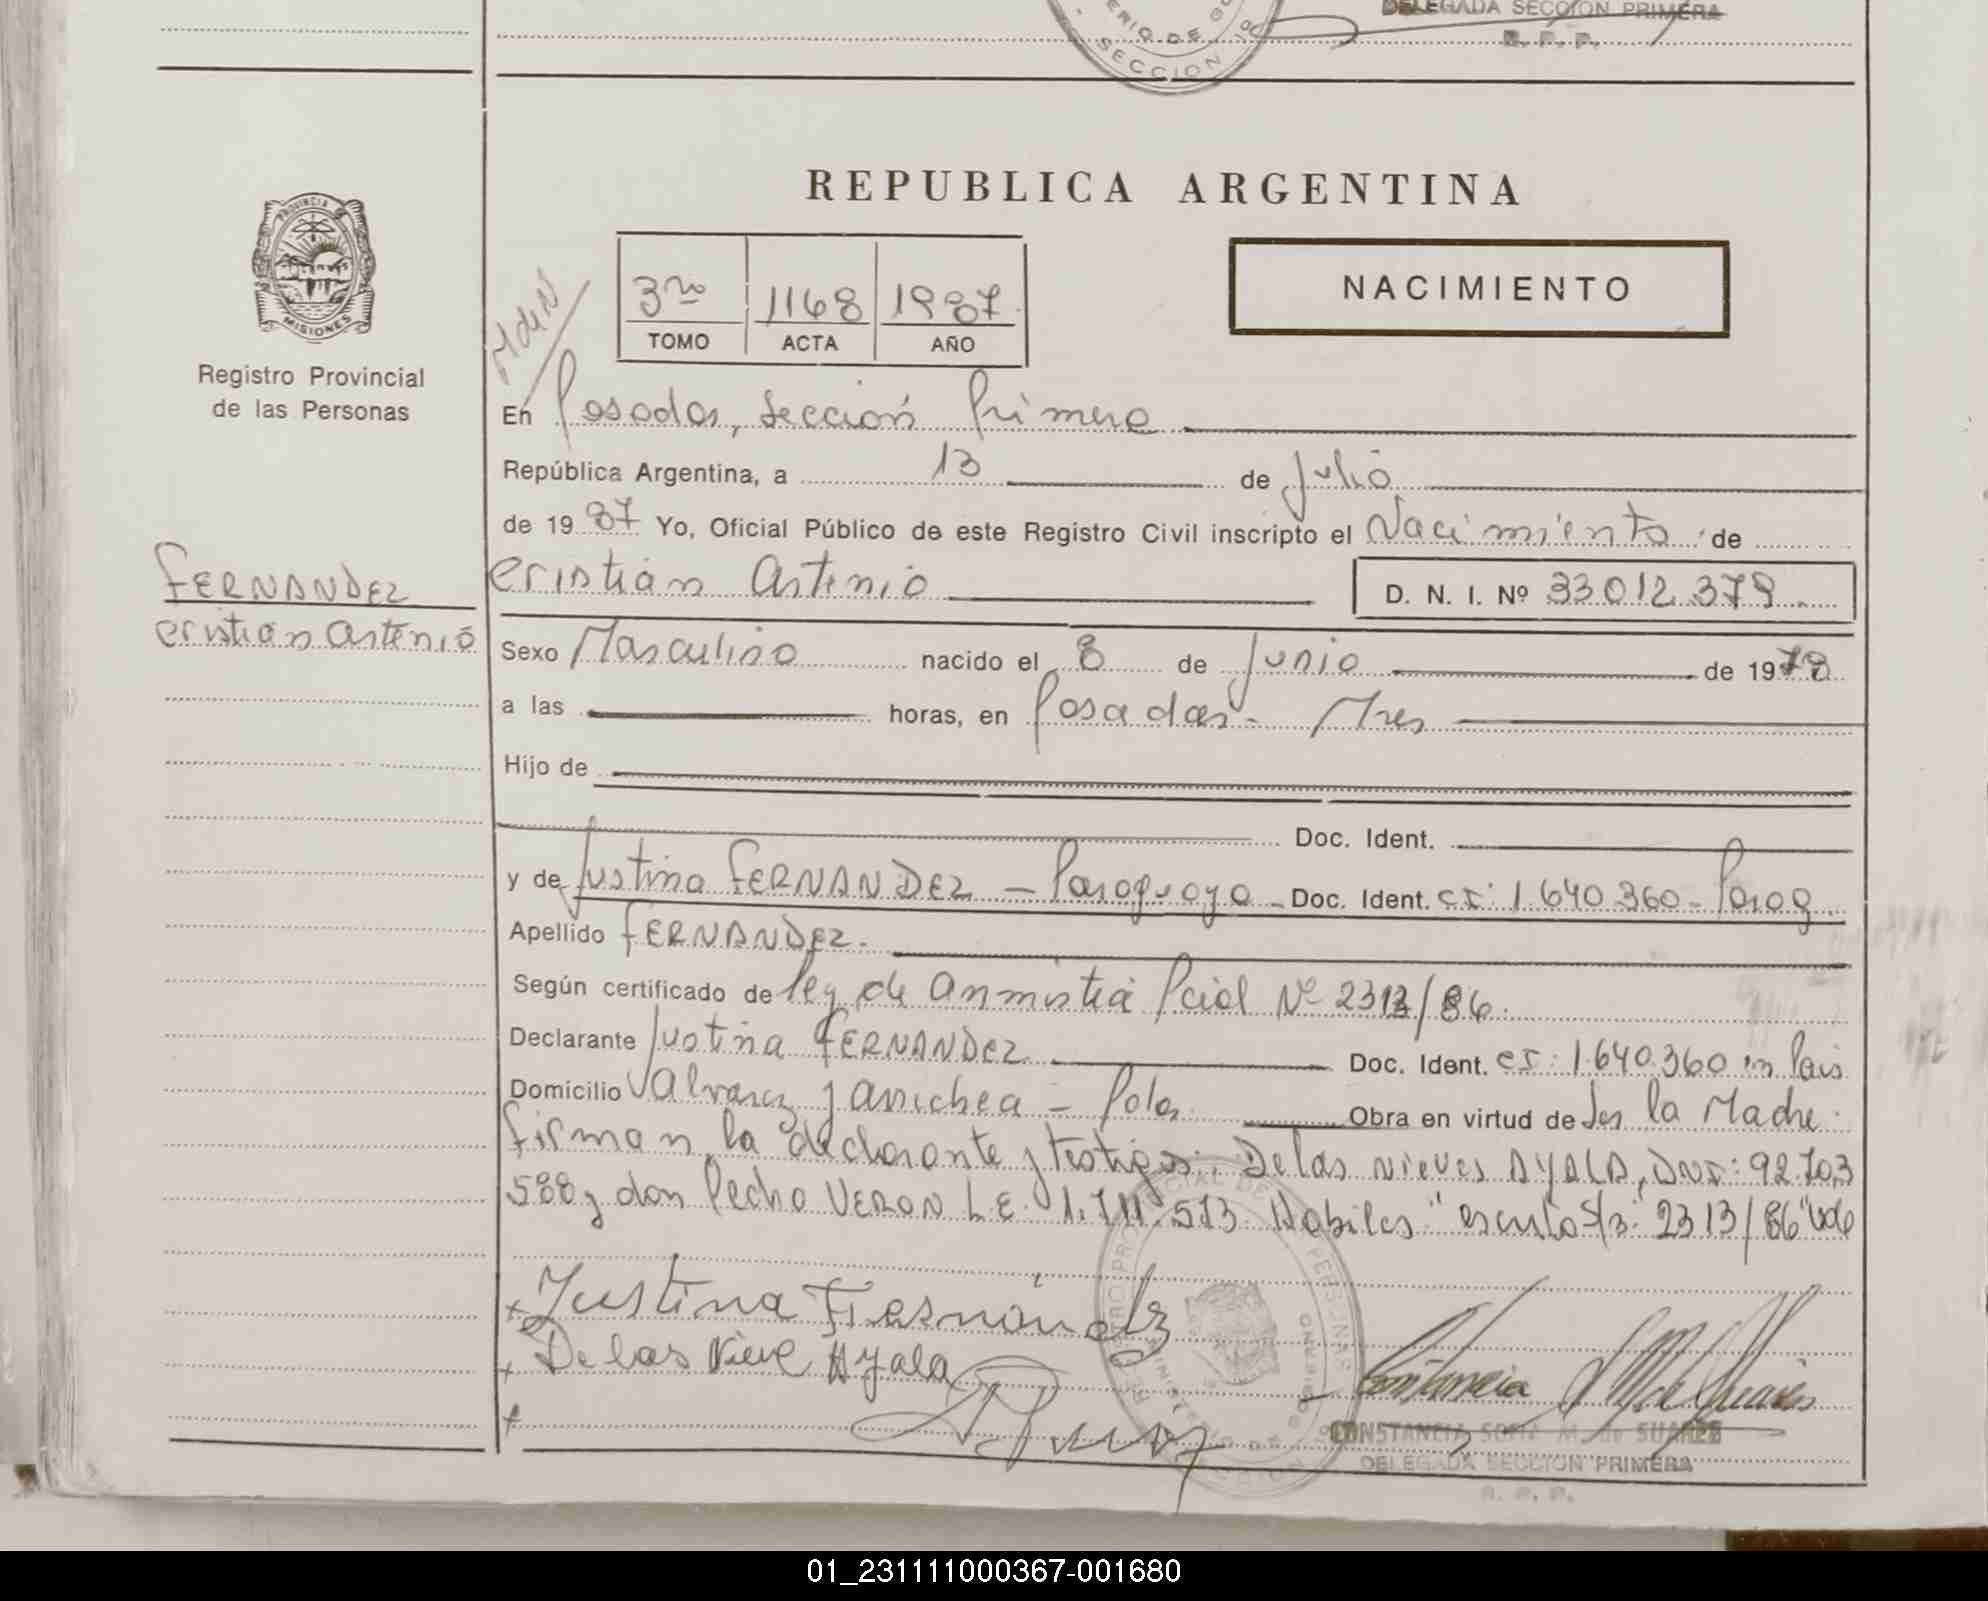 DELEGADA SECCION PRIMERA
R. P. P.
SECCION
REPUBLICA ARGENTINA
PROVINCIA DE
MISIONES
Registro Provincial
de las Personas
NACIMIENTO
3ro 1168 1987
TOMO ACTA AÑO
En Posadas, Sección Primera
República Argentina, a 13 de Julio
de 1987 Yo, Oficial Público de este Registro Civil inscripto el Nacimiento de
FERNANDEZ
Cristian Artenio
Cristian Artenio D. N. I. Nº 33012.379
Sexo Masculino nacido el 8 de Junio de 1978
a las horas, en Posadas - Mnes
Hijo de
Doc. Ident.
y de Justina FERNANDEZ - Paraguaya - Doc. Ident. CI: 1.640.360 - Parag
Apellido FERNANDEZ.
Según certificado de Ley de Anmistia Pcial Nº 2313/86.
Declarante Justina FERNANDEZ Doc. Ident. CI: 1.640.360
Domicilio Alvarez y - Pdas. Obra en virtud de Ser la Madre.
Firman la declarante y testigos: De las Nieves AYALA, DNI: 92.703
588 y don Pedro VERON L.E. 1.711.513. Habiles. "2313/86" Vale
Justina Fernández
De las Nieve Ayala
CONSTANCIA SOFIA M. de SUAREZ
DELEGADA SECCION PRIMERA
R. P. P.
01_231111000367-001680